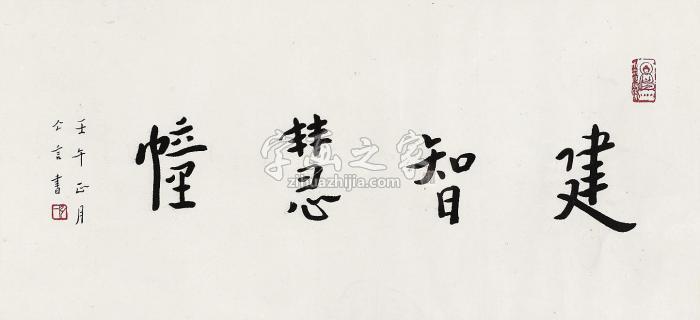 建智慧幢
壬午正月
言書
字画之家
zihuazhijia.com